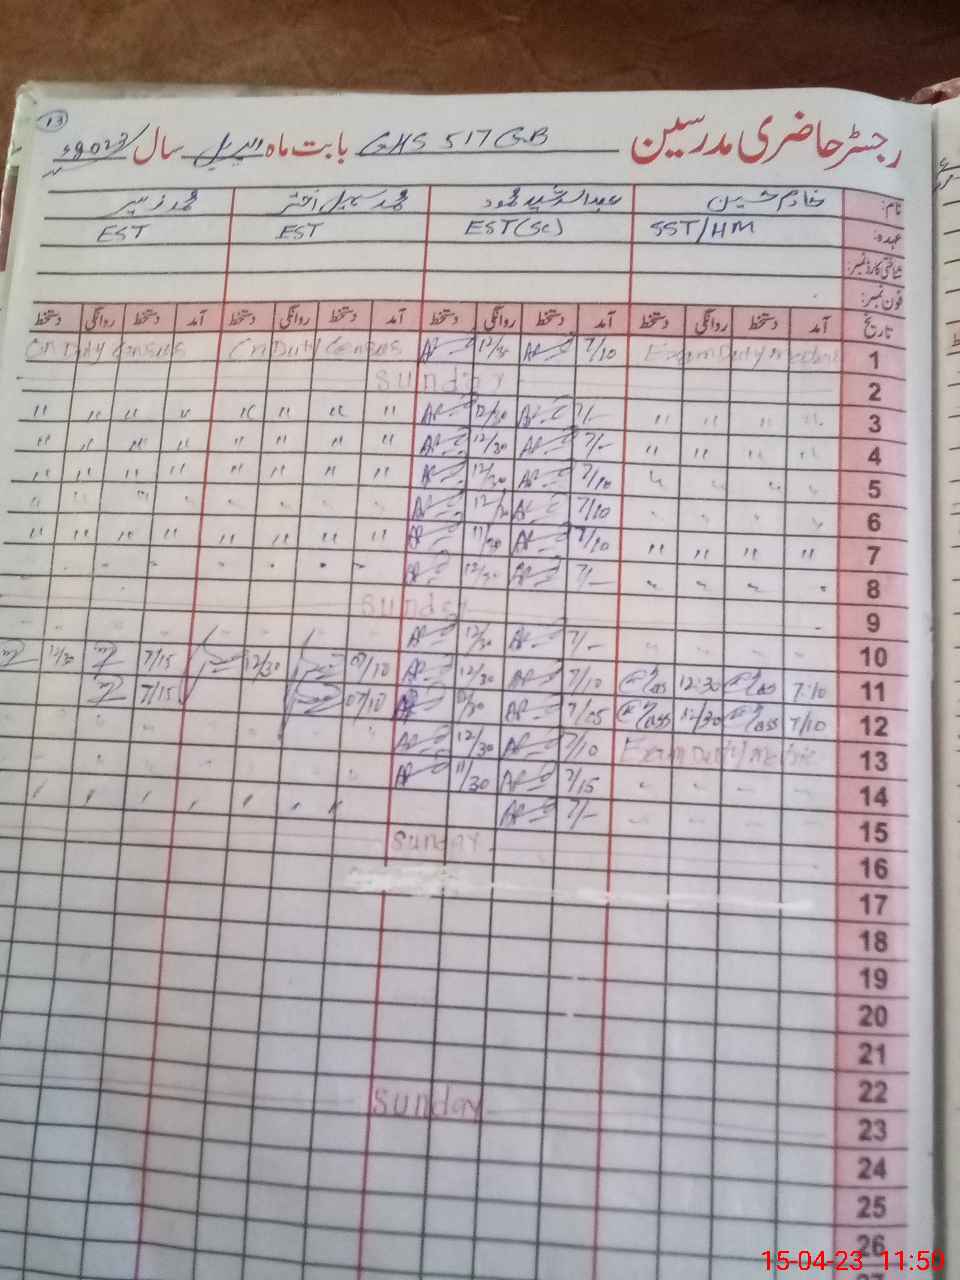 13
رجسٹر حاضری مدرسین GHS 517 GB بابت ماہ اپریل سال 2023ء
نام: خادم حسین عبدالرشید محمود محمد سہیل اختر محمد زبیر
عہدہ: SST/HM EST(SC) EST EST
شناختی کارڈ نمبر:
فون نمبر:
تاریخ آمد دستخط روانگی دستخط آمد دستخط روانگی دستخط آمد دستخط روانگی دستخط آمد دستخط روانگی دستخط
1 Exam Duty 7/10 12/30 On Duty Census On Duty Census
2 Sunday
3 " " " " 7/- 12/30 " " " " " " " "
4 " " " " 7/- 12/30 " " " " " " " "
5 " " " " 7/10 12/30 " " " " " " " "
6 " " " " 7/10 12/30 " " " " " " " "
7 " " " " 7/10 11/30 " " " " " " " "
8 " " " " 7/- 12/30
9 Sunday
10 7/- 12/30
11 7:10 12:30 7/10 12/30 07/10 12/30 7/15 12/30
12 7/10 12/30 7/05 07/10 7/15
13 Exam Duty 7/10 12/30
14 7/15 11/30
15 7/-
16 Sunday
17
18
19
20
21
22
23 Sunday
24
25
26
15-04-23 11:50